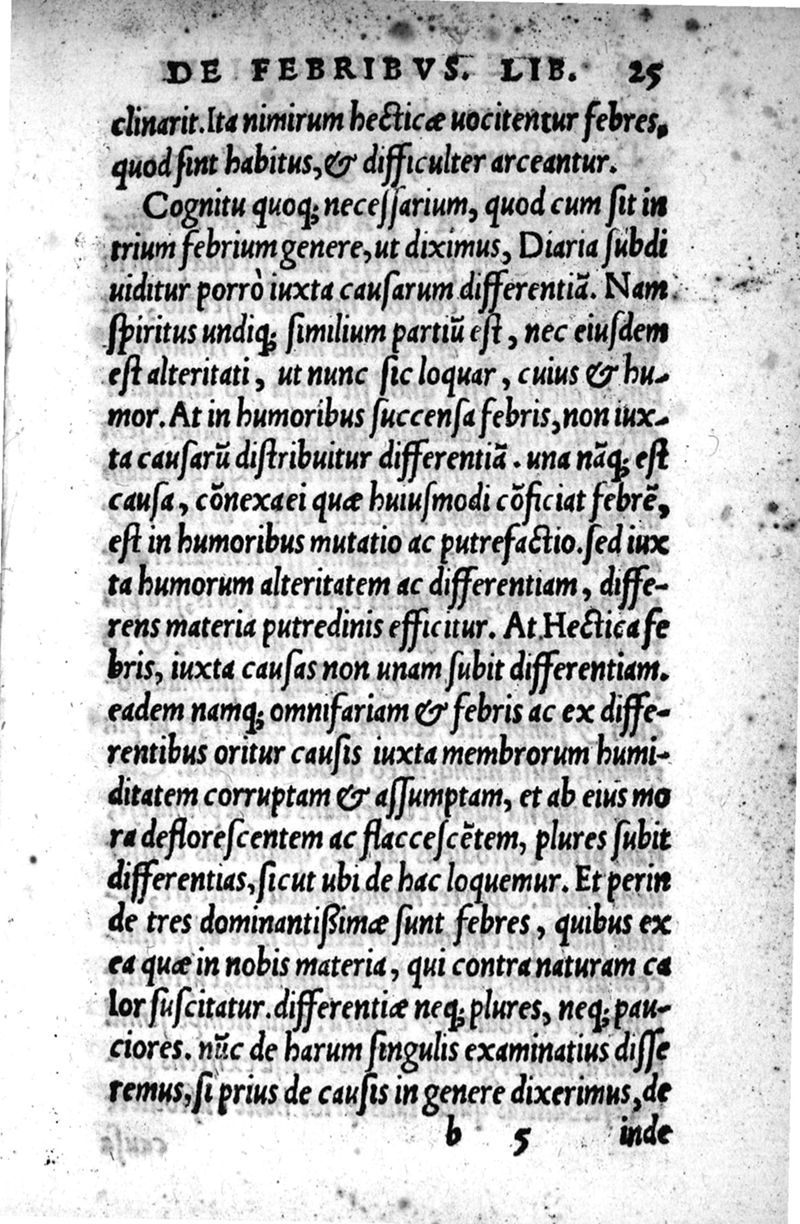 DE FEBRIBVS. LIB. 25
clinarit. Ita nimirum hecticæ uocitentur febres,
quod sint habitus, & difficulter arceantur.
Cognitu quoq; necessarium, quod cum sit in
trium febrium genere, ut diximus, Diaria subdi
uiditur porrò iuxta causarum differentiā. Nam
spiritus undiq; similium partiū est, nec eiusdem
est alteritati, ut nunc sic loquar, cuius & hu-
mor. At in humoribus succensa febris, non iux-
ta causarū distribuitur differentiā. una nāq; est
causa, cōnexaei quæ huiusmodi cōficiat febrē,
est in humoribus mutatio ac putrefactio. sed iux
ta humorum alteritatem ac differentiam, diffe-
rens materia putredinis efficitur. At Hectica fe
bris, iuxta causas non unam subit differentiam.
eadem namq; omnifariam & febris ac ex diffe-
rentibus oritur causis iuxta membrorum humi-
ditatem corruptam & assumptam, et ab eius mo
ra deflorescentem ac flaccescētem, plures subit
differentias, sicut ubi de hac loquemur. Et perin
de tres dominantißimæ sunt febres, quibus ex
ea quæ in nobis materia, qui contra naturam ca
lor suscitatur. differentiæ neq; plures, neq; pau-
ciores. nūc de harum singulis examinatius disse
remus, si prius de causis in genere dixerimus, de
b 5 inde